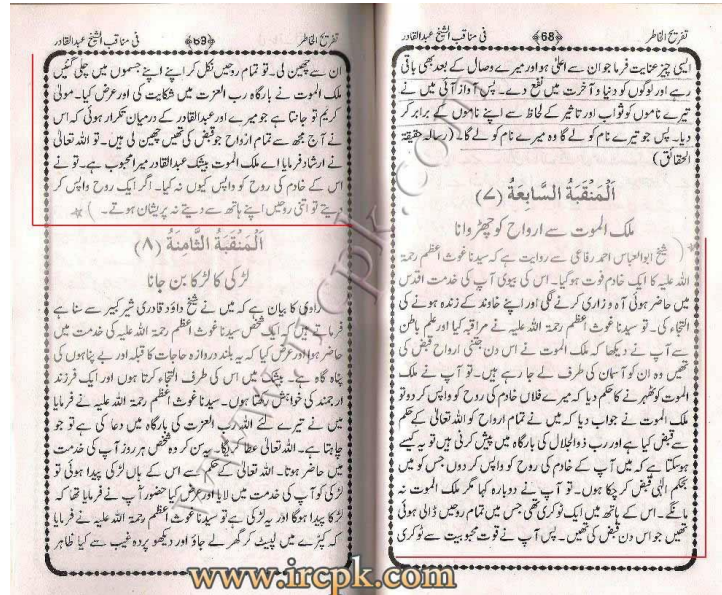 تفریح الخاطر ﴿68﴾ فی مناقب الشیخ عبدالقادر
ایسی چیز عنایت فرما جو ان سے اعلیٰ ہو اور میرے وصال کے بعد بھی باقی
رہے اور لوگوں کو دنیا و آخرت میں نفع دے۔ پس آواز آئی میں نے
تیرے ناموں کو ثواب اور تاثیر کے لحاظ سے اپنے ناموں کے برابر کر
دیا۔ پس جو تیرے نام کو لے گا وہ میرے نام کو لے گا۔ (رسالہ حقیقۃ
الحقائق)
اَلْمَنْقَبَةُ السَّابِعَةُ (۷)
ملک الموت سے ارواح کو چھڑوانا
شیخ ابوالعباس احمد رفاعی سے روایت ہے کہ سیدنا غوث اعظم رحمۃ
اللہ علیہ کا ایک خادم فوت ہو گیا۔ اس کی بیوی آپ کی خدمت اقدس
میں حاضر ہوئی آہ و زاری کرنے لگی اور اپنے خاوند کے زندہ ہونے کی
التجاء کی۔ تو سیدنا غوث اعظم رحمۃ اللہ علیہ نے مراقبہ کیا اور علم باطن
سے آپ نے دیکھا کہ ملک الموت نے اس دن جتنی ارواح قبض کی
تھیں وہ ان کو آسمان کی طرف لے جا رہے ہیں۔ تو آپ نے ملک
الموت کو ٹھہرنے کا حکم دیا کہ میرے فلاں خادم کی روح کو واپس کر دو تو
ملک الموت نے جواب دیا کہ میں نے تمام ارواح کو اللہ تعالیٰ کے حکم
سے قبض کیا ہے اور رب ذوالجلال کی بارگاہ میں پیش کرنی ہیں تو یہ کیسے
ہو سکتا ہے کہ میں آپ کے خادم کی روح کو واپس کر دوں جس کو میں
بحکم الٰہی قبض کر چکا ہوں۔ تو آپ نے دوبارہ کہا مگر ملک الموت نہ
مانگے۔ اس کے ہاتھ میں ایک ٹوکری تھی جس میں تمام روحیں ڈالی ہوئی
تھیں جو اس دن قبض کی تھیں۔ پس آپ نے قوت محبوبیت سے ٹوکری
تفریح الخاطر ﴿69﴾ فی مناقب الشیخ عبدالقادر
ان سے چھین لی۔ تو تمام روحیں نکل کر اپنے اپنے جسموں میں چلی گئیں
ملک الموت نے بارگاہ رب العزت میں شکایت کی اور عرض کیا۔ مولیٰ
کریم تو جانتا ہے جو میرے اور عبدالقادر کے درمیان تکرار ہوئی کہ اس
نے آج مجھ سے تمام ارواح جو قبض کی تھیں چھین لی ہیں۔ تو اللہ تعالیٰ
نے ارشاد فرمایا اے ملک الموت بیشک عبدالقادر میرا محبوب ہے۔ تو نے
اس کے خادم کی روح کو واپس کیوں نہ کیا۔ اگر ایک روح واپس کر
دیتے تو اتنی روحیں اپنے ہاتھ سے دیتے نہ پریشان ہوتے۔)
اَلْمَنْقَبَةُ الثَّامِنَةُ (۸)
لڑکی کا لڑکا بن جانا
راوی کا بیان ہے کہ میں نے شیخ داؤد قادری شہر کبیر سے سنا ہے
فرماتے ہیں کہ ایک شخص سیدنا غوث اعظم رحمۃ اللہ علیہ کی خدمت میں
حاضر ہوا اور عرض کیا کہ یہ بلند دروازہ حاجات کا قبلہ اور بے پناہوں کی
پناہ گاہ ہے۔ بیشک میں اس کی طرف التجاء کرتا ہوں اور ایک فرزند
ارجمند کی خواہش رکھتا ہوں۔ سیدنا غوث اعظم رحمۃ اللہ علیہ نے فرمایا
میں نے تیرے لئے اللہ رب العزت کی بارگاہ میں دعا کی ہے تو جو
چاہتا ہے۔ اللہ تعالیٰ عطا کرے گا۔ یہ سن کر وہ شخص ہر روز آپ کی خدمت
میں حاضر ہوتا۔ اللہ تعالیٰ کے حکم سے اس کے ہاں لڑکی پیدا ہوئی تو
لڑکی کو آپ کی خدمت میں لایا اور عرض کیا حضور آپ نے فرمایا تھا کہ
لڑکا پیدا ہوگا اور یہ لڑکی ہے تو سیدنا غوث اعظم رحمۃ اللہ علیہ نے فرمایا
کہ کپڑے میں لپیٹ کر گھر لے جاؤ اور دیکھو پردہ غیب سے کیا ظاہر
www.ircpk.com
www.ircpk.com